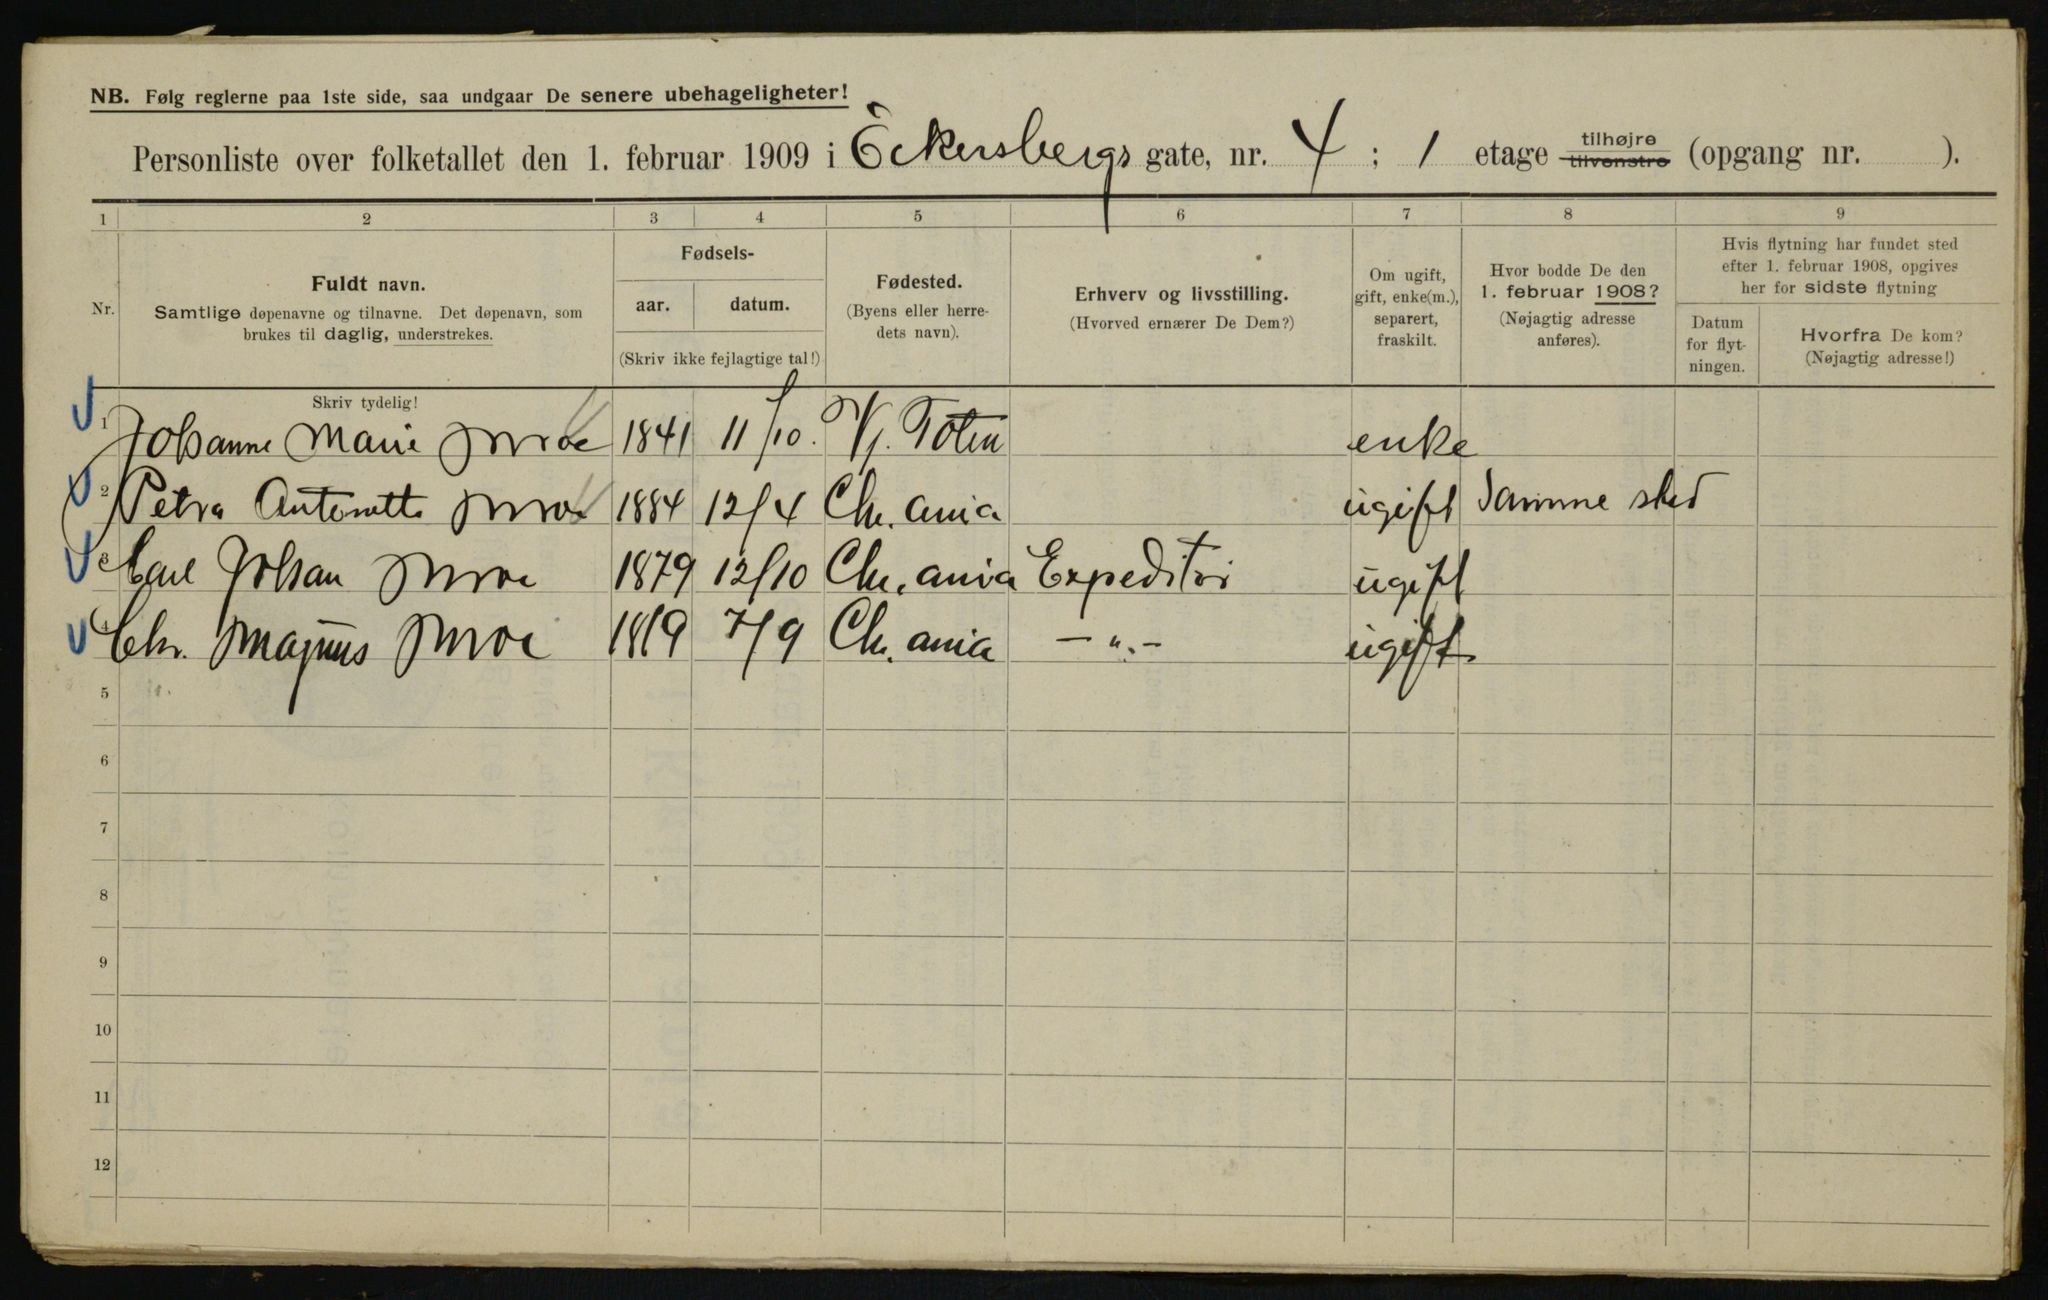 NB. Følg reglerne paa 1ste side, saa undgaar De senere ubehageligheter!
Personliste over folketallet den 1. februar 1909 i Eckersbergs gate, nr. 4 ; 1 etage tilhøjre tilvenstre (opgang nr. ).
1 2 3 4 5 6 7 8 9
Nr.
Fuldt navn.
Samtlige døpenavne og tilnavne. Det døpenavn, som
brukes til daglig, understrekes.
Fødsels-
aar. datum.
(Skriv ikke fejlagtige tal!)
Fødested.
(Byens eller herre-
dets navn).
Erhverv og livsstilling.
(Hvorved ernærer De Dem?)
Om ugift,
gift, enke(m.),
separert,
fraskilt.
Hvor bodde De den
1. februar 1908?
(Nøjagtig adresse
anføres).
Hvis flytning har fundet sted
efter 1. februar 1908, opgives
her for sidste flytning
Datum
for flyt-
ningen.
Hvorfra De kom?
(Nøjagtig adresse!)
Skriv tydelig!
1 Johanne Marie Moe 1841 11/10. V. Toten enke
2 Petra Antonette Moe 1884 12/4 Chr.ania ugift Samme sted
3 Carl Johan Moe 1879 12/10 Chr.ania Expeditør ugift
4 Chr. Magnus Moe 7/9 Chr.ania —„— ugift
5
6
7
8
9
10
11
12